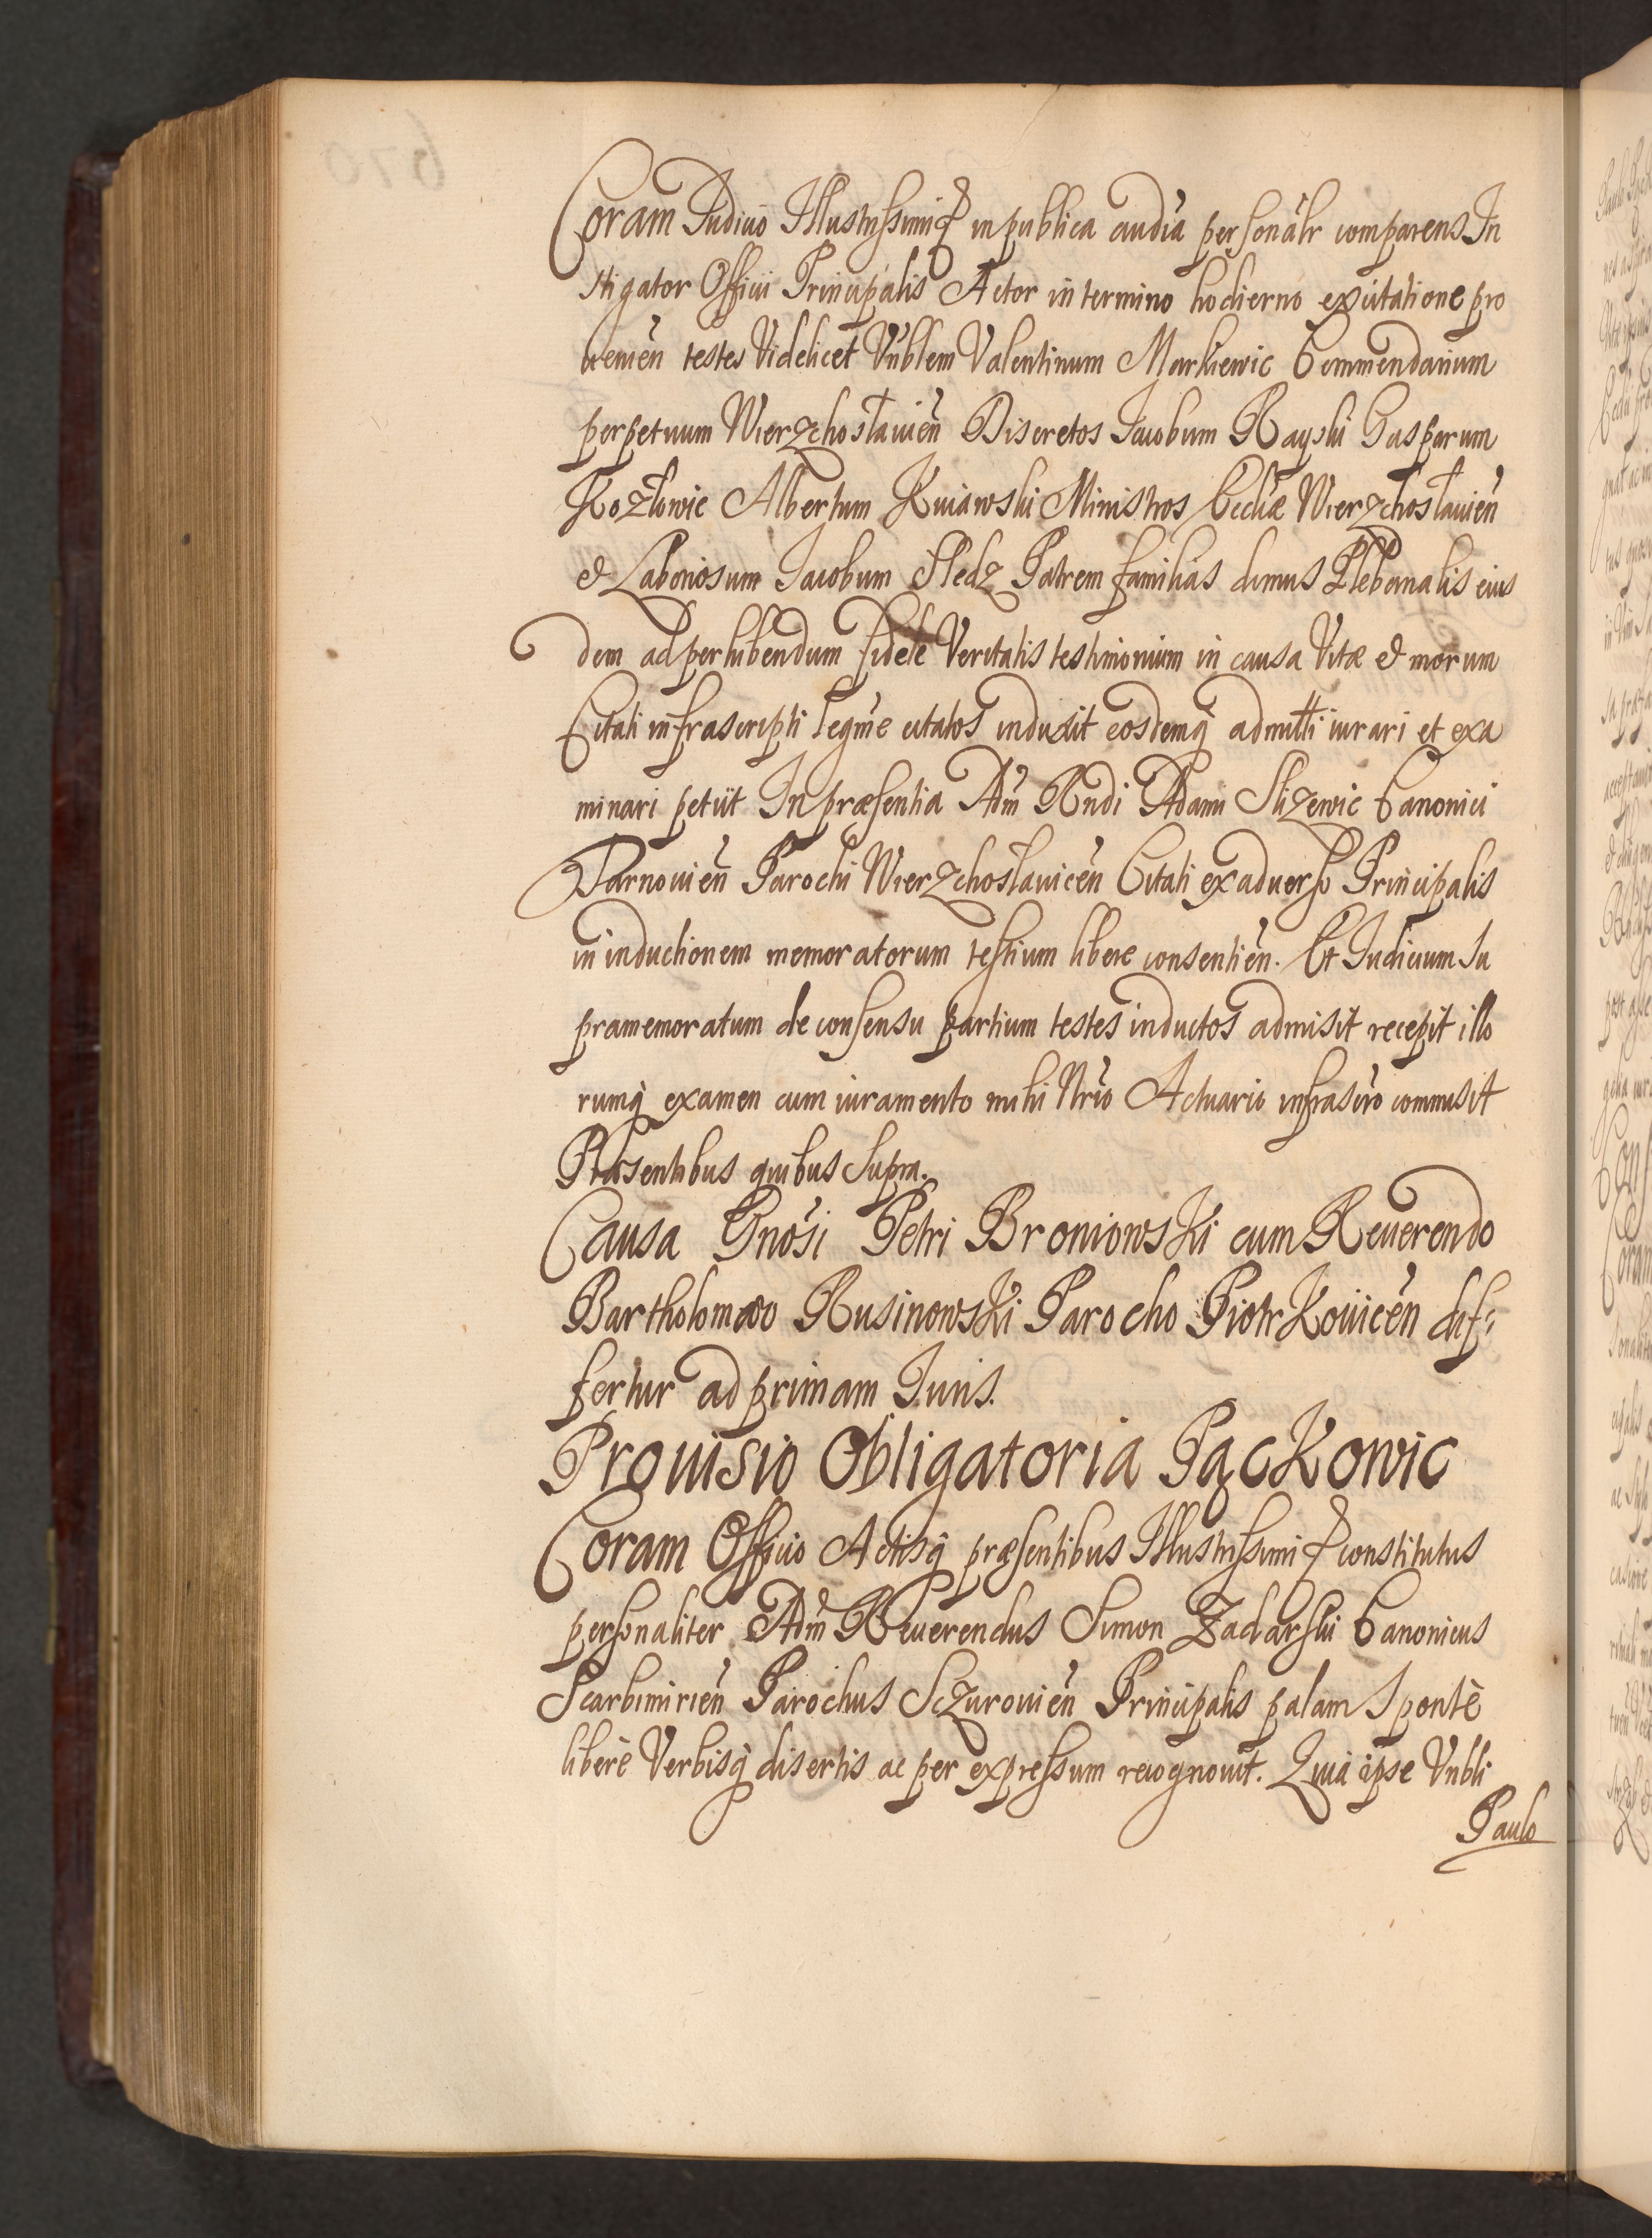 Coram Judicio Illustrissimi & in publica audia personalr comparens In
stigator Officii Principalis Actor in termino hodierno ex citatione pro
uenien testes Videlicet Vnblem Valentinum Markiewic Commendarium
perpetuum Wierzchosławien Discretos Jacobum Rayski Gasparum
Kozłowic Albertum Kuiawski Ministros Eccliæ Wierzchosławien
& Laboriosum Jacobum Sledz Patrem familias domus Plebanalis eius
dem ad perhibendum fidele Veritatis testimonium in causa Vitæ & morum
Citati infrascripti legme citatos induxit eosdemq admitti iurari et exa
minari petiit In præsentia Adm Rndi Adami Slizewic Canonici
Tarnouien Parochi Wierzchosławicen Citati ex aduerso Principalis
in inductionem memoratorum testium libere consentien. Et Judicium Su
pramemoratum de consensu partium testes inductos admisit recepit illo
rumq examen cum iuramento mihi Nrio Actuario infrascro commisit
Præsentibus quibus Supra.
Causa Gnosi Petri Broniowski cum Reuerendo
Bartholomæo Rusinowski Parocho Piotrkouicen dif:
fertur ad primam Juris.
Prouisio Obligatoria Pąckowic
Coram Officio Actisq præsentibus Illustrissimi & constitutus
personaliter Adm Reuerendus Simon Zadarski Canonicus
Scarbimirien Parochus Sczurouien Principalis palam Sponte
liberè Verbisq disertis ac per expressum recognouit. Quia ipse Vnbli
Paulo
670